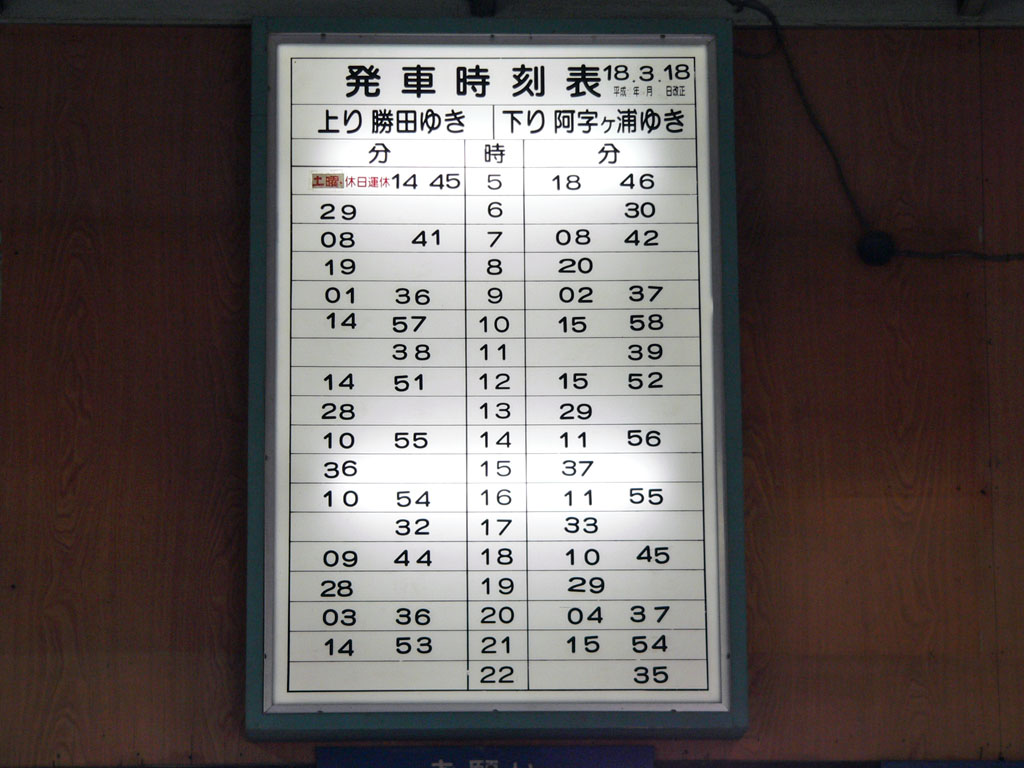 発車時刻表 18.3.18
平成 年 月 日改正
上り 勝田ゆき 下り 阿字ヶ浦ゆき
分 時 分
土曜・休日運休 14 45 5 18 46
29 6 30
08 41 7 08 42
19 8 20
01 36 9 02 37
14 57 10 15 58
38 11 39
14 51 12 15 52
28 13 29
10 55 14 11 56
36 15 37
10 54 16 11 55
32 17 33
09 44 18 10 45
28 19 29
03 36 20 04 37
14 53 21 15 54
22 35